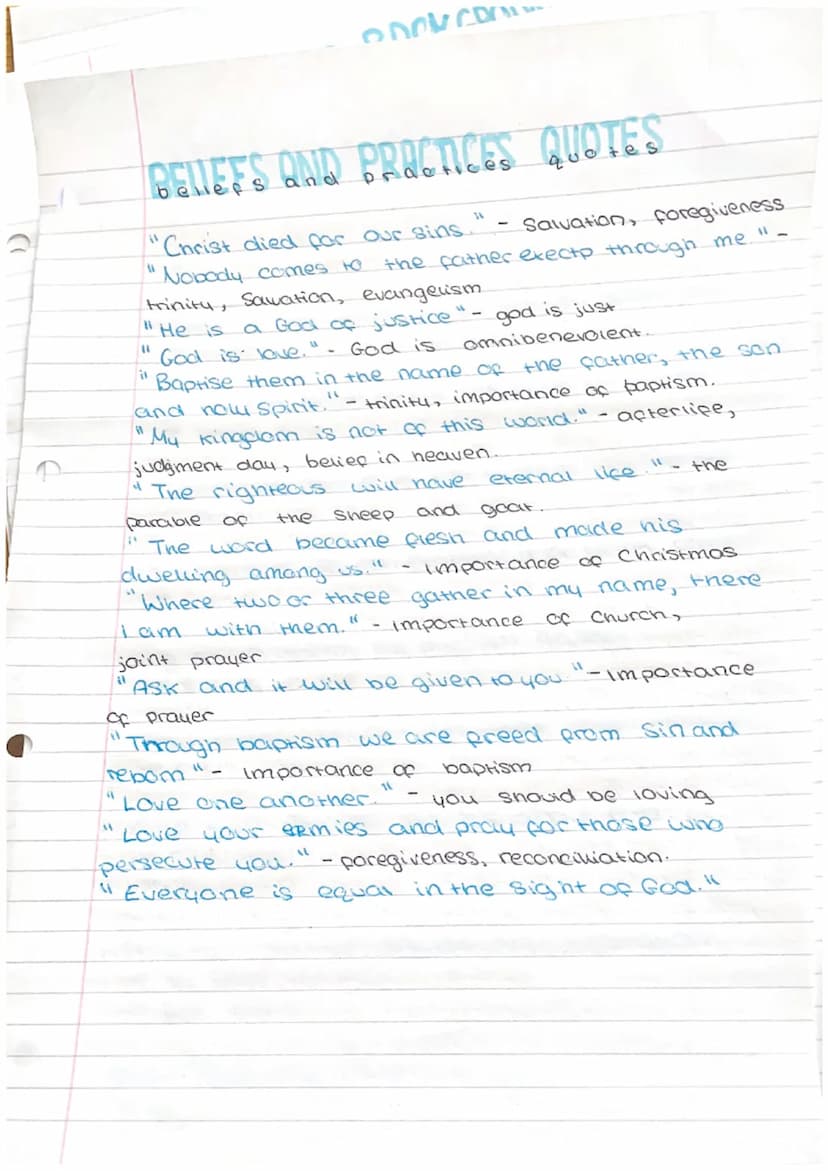 BELIEFS AND PRACTICES QUOTES
beliefs and practices quotes
"Christ died for our sins." - Salvation, foregiveness
"Nobody comes to the father exectp through me." -
trinity, Salvation, evangelism
"He is a God of justice" - god is just
"God is love." - God is omnibenevolent.
"Baptise them in the name of the father, the son
and holy spirit." - trinity, importance of baptism.
"My kingdom is not of this world." - afterlife,
judgment day, belief in heaven.
"The righteous will have eternal life." - the
parable of the sheep and goat.
"The word became flesh and made his
dwelling among us." - importance of Christmas
"Where two or three gather in my name, there
I am with them." - importance of Church,
joint prayer
"Ask and it will be given to you" - importance
of prayer
"Through baptism we are freed from sin and
reborn" - importance of baptism
"Love one another." - you should be loving
"Love your enmies and pray for those who
persecute you." - foregiveness, reconciliation.
"Everyone is equal in the sight of God."